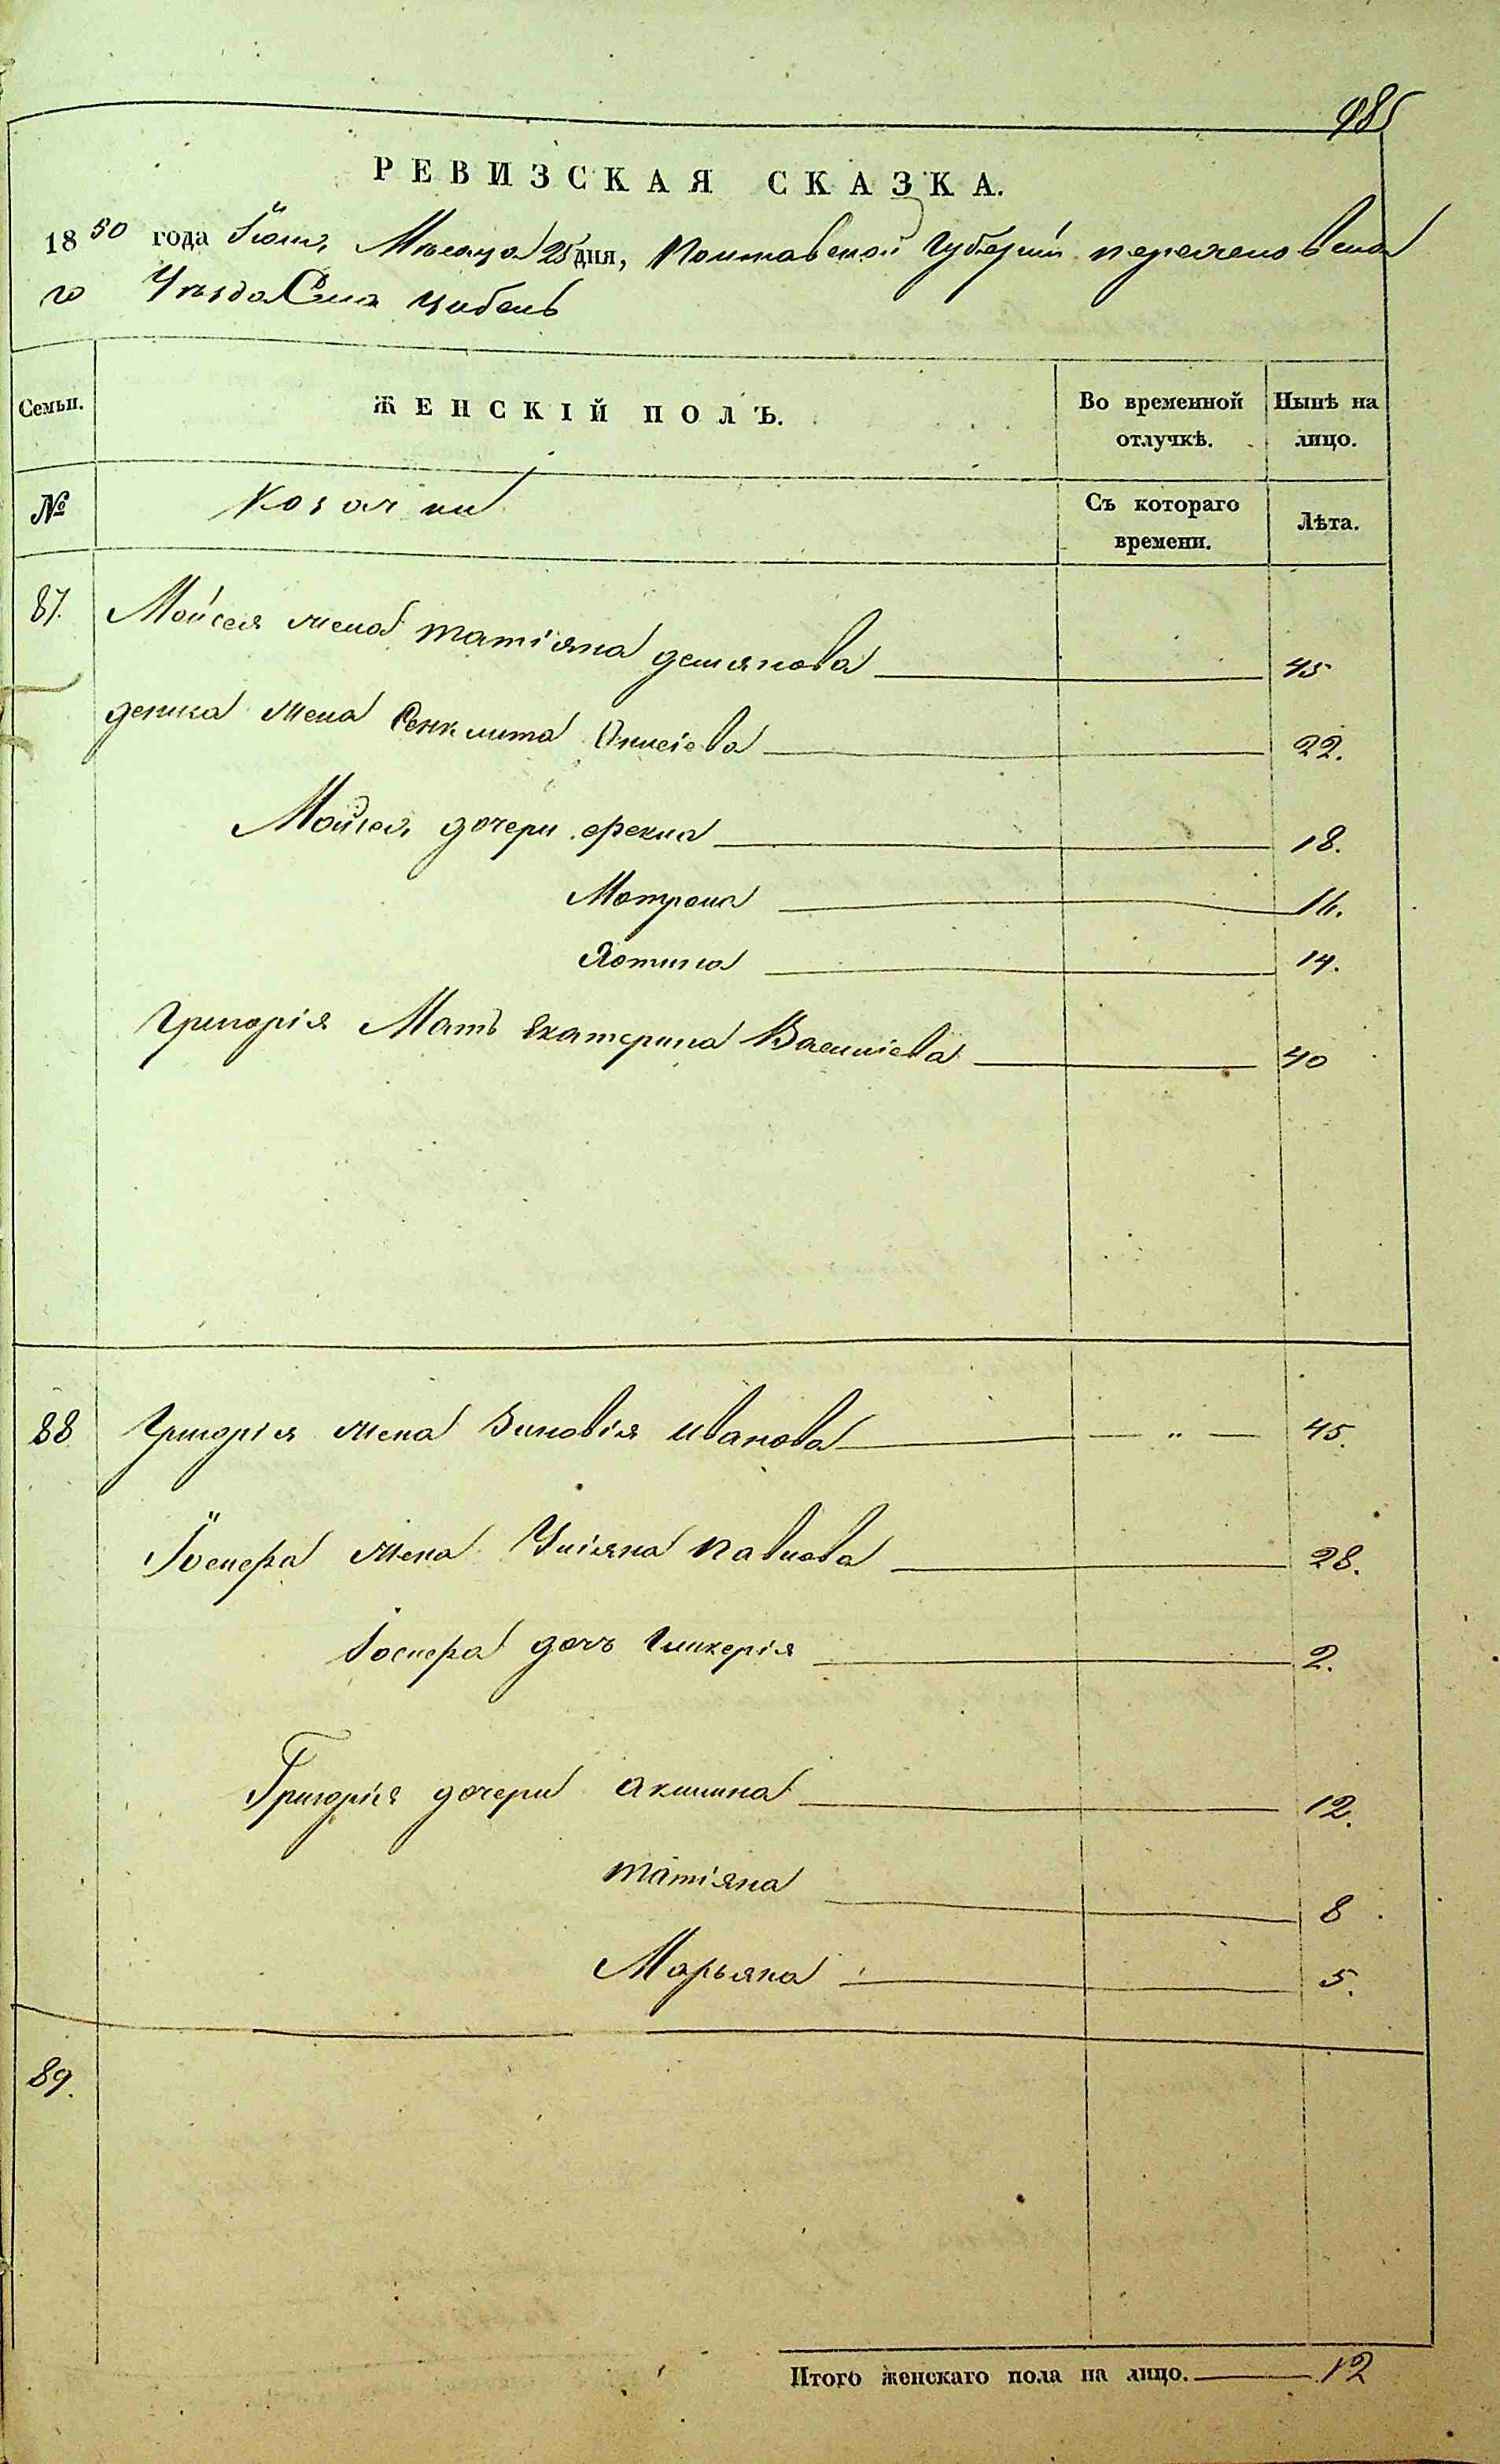 985
РЕВИЗСКАЯ СКАЗКА.
1850 года Іюля Мѣсяца 25 дня, Полтавской Губерніи переяславска
го Уѣзда Села Цибель
Семьи. ЖЕНСКІЙ ПОЛЪ. Во временной отлучкѣ. Нынѣ на лицо.
№ Козачки Съ котораго времени. Лѣта.
87. Мойсея жена татіяна демянова 45
жена Онисіева 22.
Мойсея дочери фекла 18.
Мотрона 16.
14.
Григорія Мать Екатерина Василіева 40
88 Григорія жена Зиновія иванова — „ — 45.
Іосифа жена Уліяна павлова 28.
Іосифа дочь Гликерія 2.
Григорія дочери акилина 12.
татіяна 8
Марьяна 5.
89.
Итого женскаго пола на лицо. 12